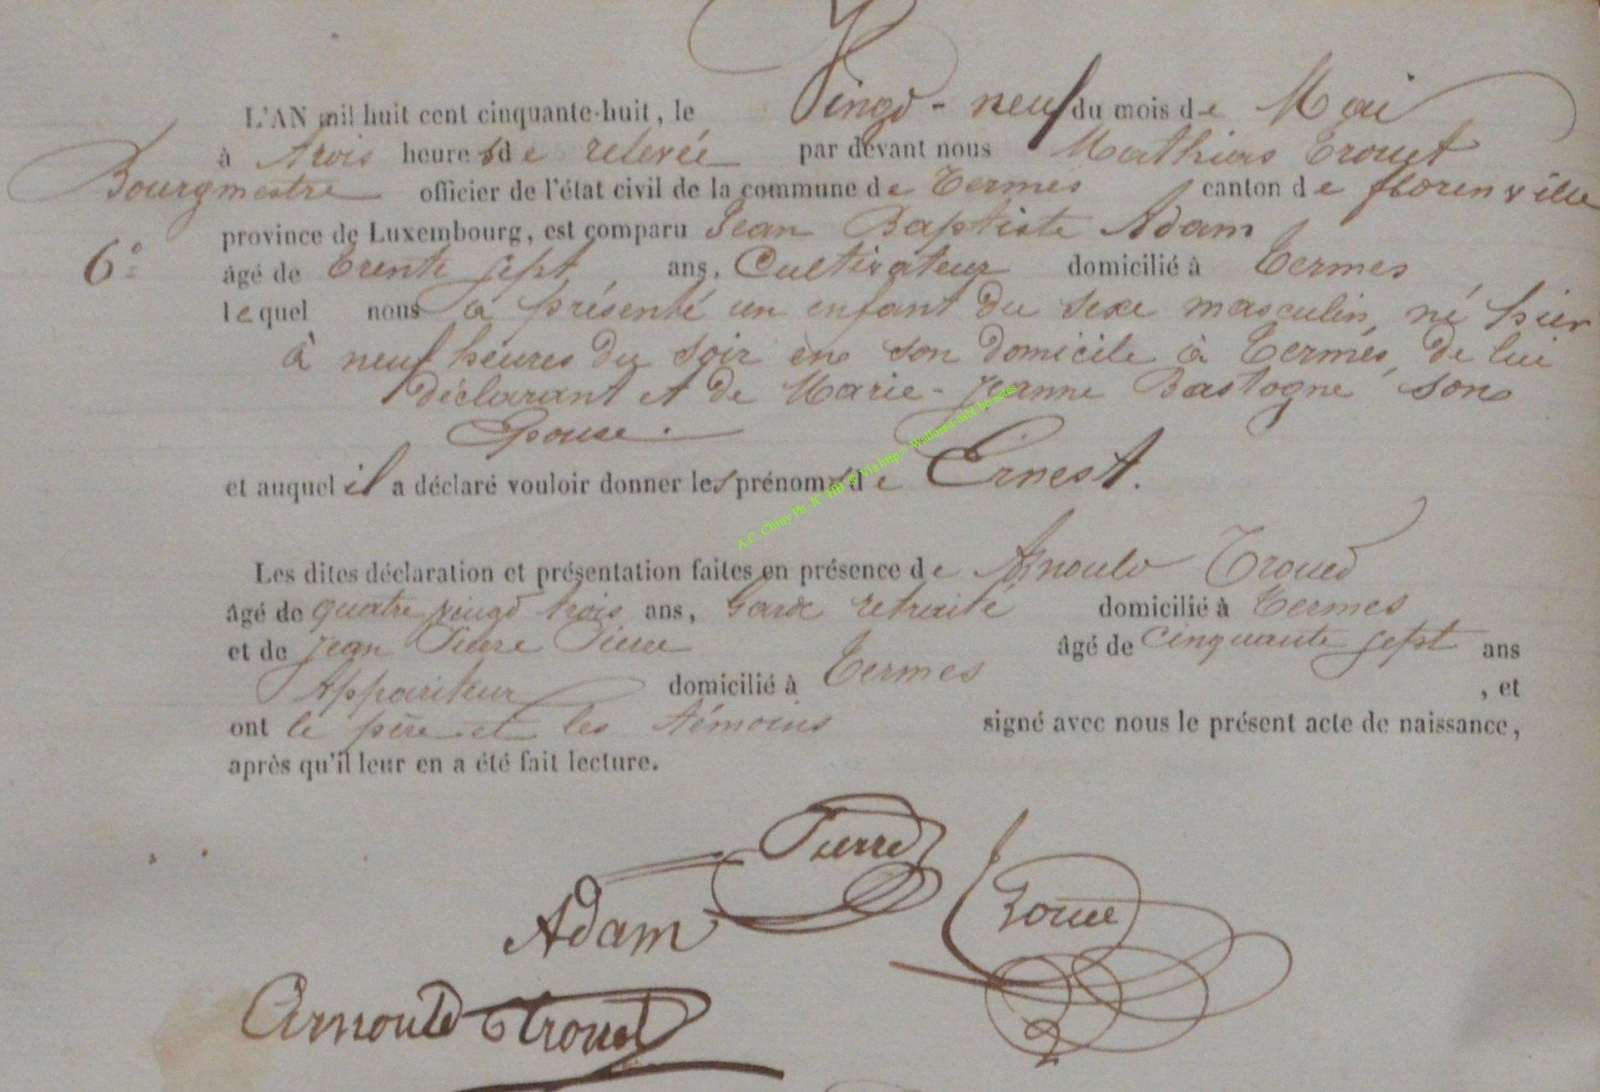 L'AN mil huit cent cinquante-huit, le Vingt-neuf du mois de Mai
à trois heures de relevée par devant nous Mathias Trouet
Bourgmestre officier de l'état civil de la commune de Termes canton de florenville
province de Luxembourg, est comparu Jean Baptiste Adam
6°
âgé de trente sept ans, Cultivateur domicilié à Termes
lequel nous a présenté un enfant du sexe masculin, né hier
à neuf heures du soir en son domicile à Termes, de lui
déclarant et de Marie-Jeanne Bastogne son
Epouse.
et auquel il a déclaré vouloir donner les prénoms de Ernest.
Les dites déclaration et présentation faites en présence de Arnould Troued
âgé de quatre vingt trois ans, Garde retraité domicilié à Termes
et de Jean Pierre Pierre âgé de cinquante sept ans
Appariteur domicilié à Termes , et
ont le père et les témoins signé avec nous le présent acte de naissance,
après qu'il leur en a été fait lecture.
Pierre
Adam
Arnould Trouet